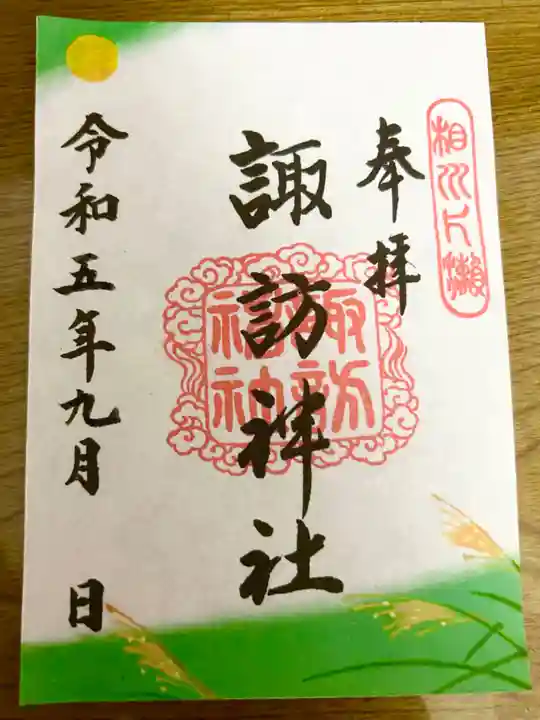 相州片瀬
奉拝
諏訪神社
諏訪
福神
令和五年九月 日